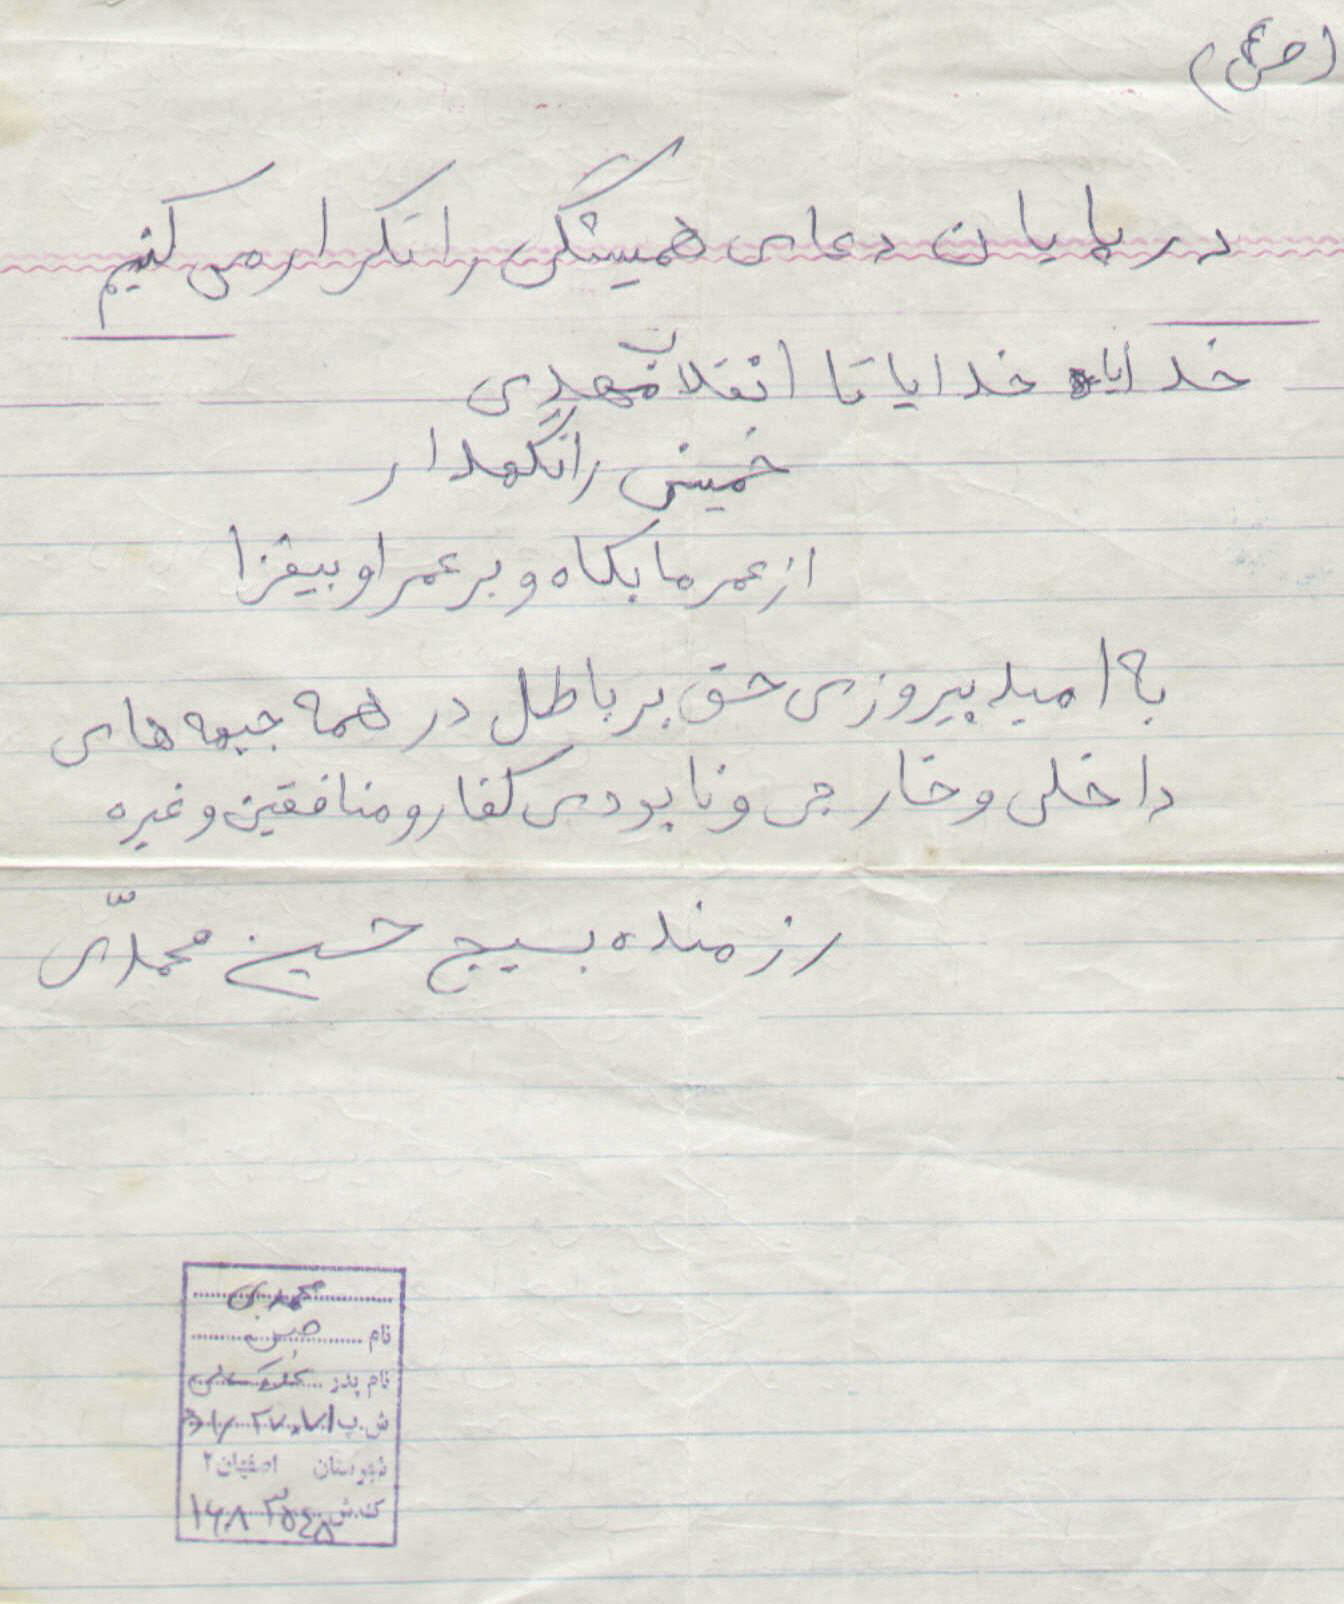 (ص ۴)
در پایان دعای همیشگی را تکرار می کنیم
خدایا خدایا تا انقلاب مهدی
خمینی را نگهدار
از عمر ما بکاه و بر عمر او بیفزا
به امید پیروزی حق بر باطل در همه جبهه های
داخلی و خارجی و نابودی کفار و منافقین و غیره
رزمنده بسیج حسین محمدی
محمدی
نام حسین
نام پدر
ش.پ
شهرستان اصفهان ۲
کد.ش